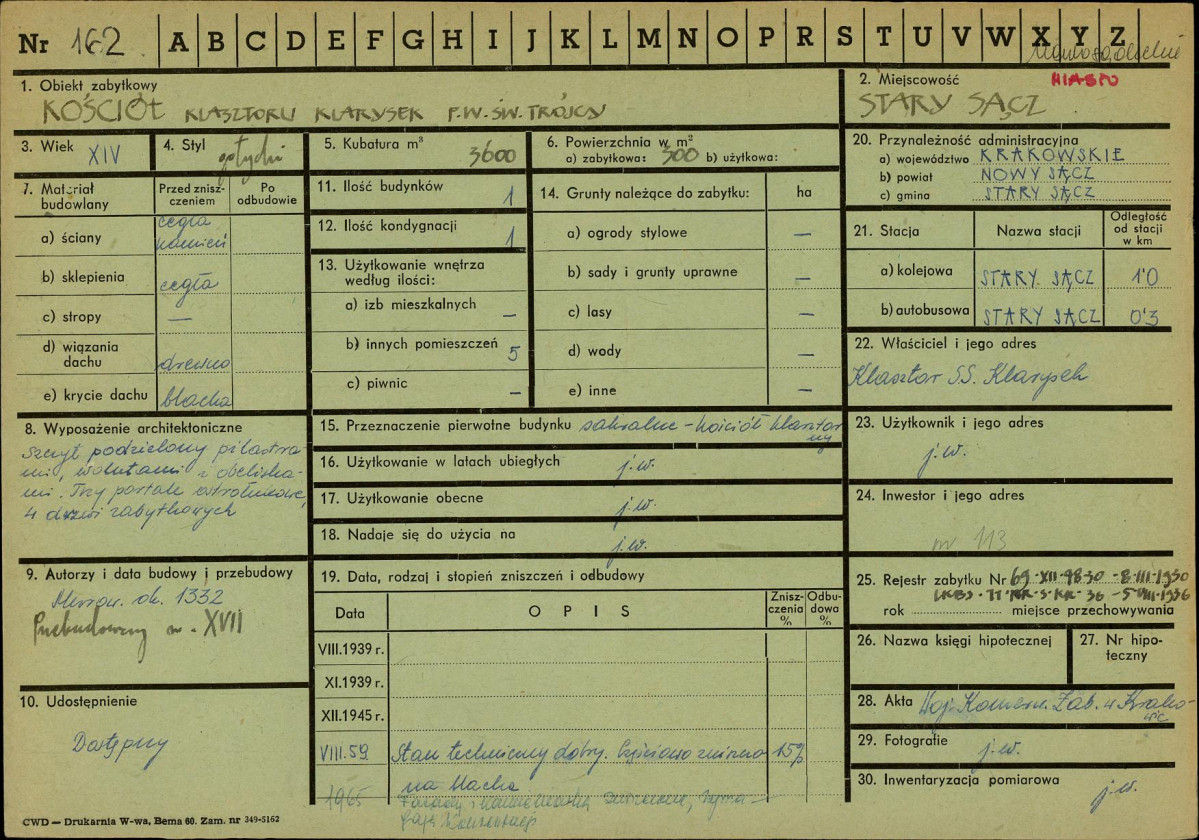 Nr 162 A B C D E F G H I J K L M N O P R S T U V W X Y Z
1. Obiekt zabytkowy
KOŚCIÓŁ KLASZTORU KLARYSEK P.W. ŚW. TRÓJCY
2. Miejscowość MIASTO
STARY SĄCZ
3. Wiek XIV
4. Styl gotycki
5. Kubatura m³ 3600
6. Powierzchnia w m²
a) zabytkowa: 300 b) użytkowa:
7. Materiał budowlany
Przed zniszczeniem
Po odbudowie
a) ściany cegła kamień
b) sklepienia cegła
c) stropy —
d) wiązania dachu drewno
e) krycie dachu blacha
8. Wyposażenie architektoniczne
Szczyt podzielony pilastra-
mi, wolutami i obeliska-
mi. Trzy portale ostrołukowe,
4 drzwi zabytkowych
9. Autorzy i data budowy i przebudowy
ok. 1332
Przebudowany w. XVII
10. Udostępnienie
Dostępny
11. Ilość budynków 1
12. Ilość kondygnacji 1
13. Użytkowanie wnętrza według ilości:
a) izb mieszkalnych —
b) innych pomieszczeń 5
c) piwnic —
14. Grunty należące do zabytku: ha
a) ogrody stylowe —
b) sady i grunty uprawne —
c) lasy —
d) wody —
e) inne —
15. Przeznaczenie pierwotne budynku sakralne – kościół klasztorny
16. Użytkowanie w latach ubiegłych j.w.
17. Użytkowanie obecne j.w.
18. Nadaje się do użycia na j.w.
19. Data, rodzaj i stopień zniszczeń i odbudowy
Data OPIS Zniszczenia % Odbudowa %
VIII.1939 r.
XI.1939 r.
XII.1945 r.
VIII.59 Stan techniczny dobry. Częściowo 15%
na blacha
1965
20. Przynależność administracyjna
a) województwo KRAKOWSKIE
b) powiat NOWY SĄCZ
c) gmina STARY SĄCZ
21. Stacja Nazwa stacji Odległość od stacji w km
a) kolejowa STARY SĄCZ 1'0
b) autobusowa STARY SĄCZ 0'3
22. Właściciel i jego adres
Klasztor SS. Klarysek
23. Użytkownik i jego adres
j.w.
24. Inwestor i jego adres
nr 113
25. Rejestr zabytku Nr
rok miejsce przechowywania
26. Nazwa księgi hipotecznej
27. Nr hipoteczny
28. Akta Woj. Konserw. Zab. w Krakowie
29. Fotografie j.w.
30. Inwentaryzacja pomiarowa j.w.
CWD — Drukarnia W-wa, Bema 60. Zam. nr 349-5162